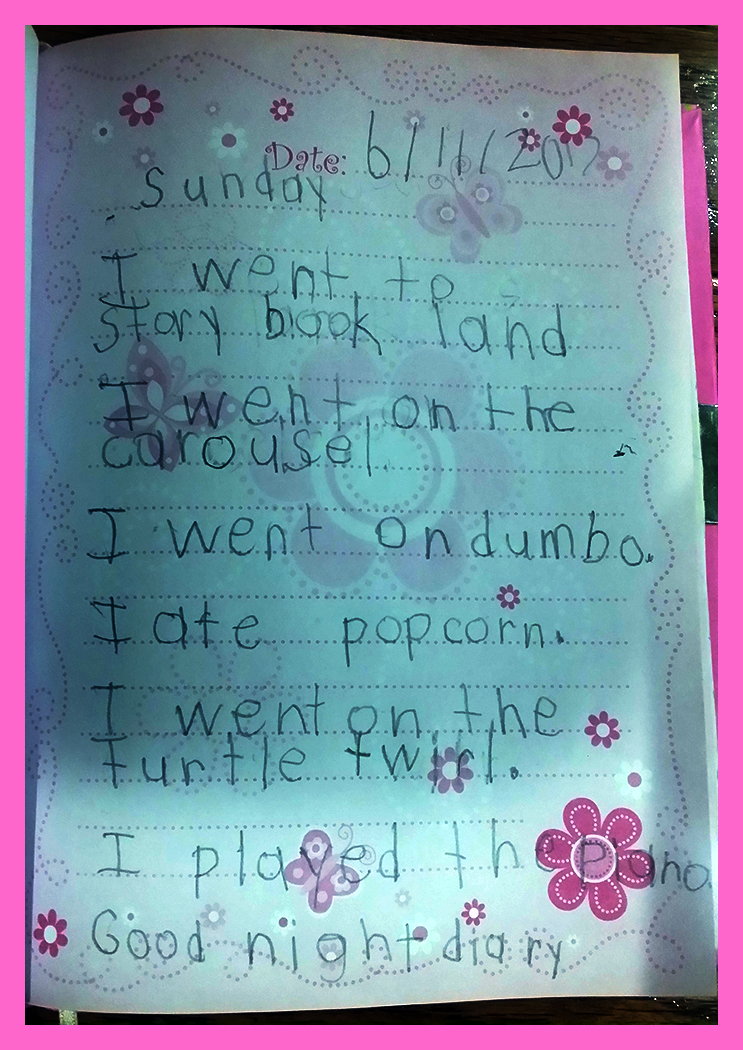 Date: 6/11/2017
Sunday
I went to
story book land
I went on the
carousel.
I went on dumbo.
I ate popcorn.
I went on the
turtle twirl.
I played the piano.
Good night diary